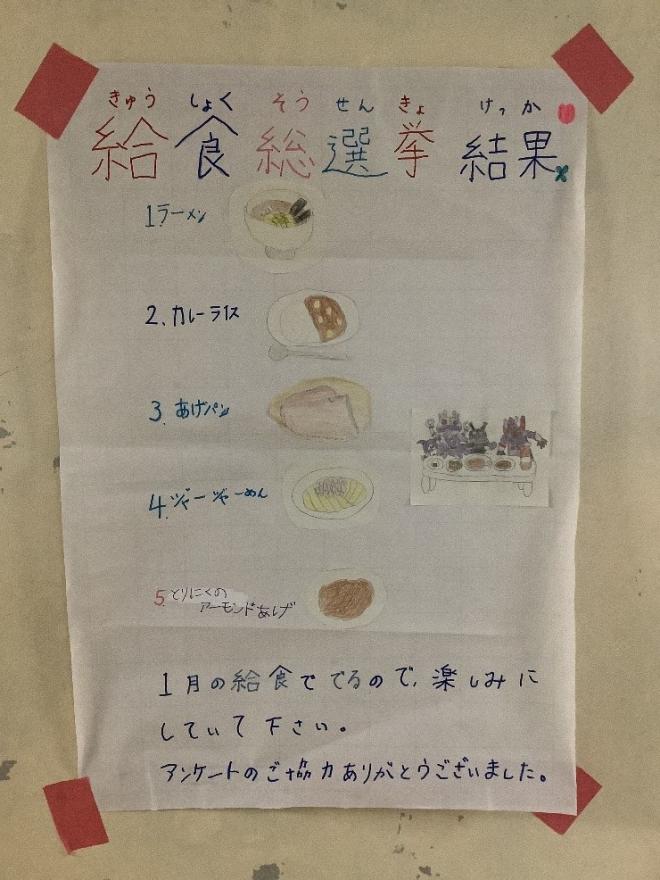 きゅう しょく そう せん きょ けっ か
給食 総選挙 結果
1.ラーメン
2.カレーライス
3.あげパン
4.ジャージャーめん
5.とりにくの
アーモンドあげ
1月の給食で でるので、楽しみに
していて下さい。
アンケートのご協力ありがとうございました。